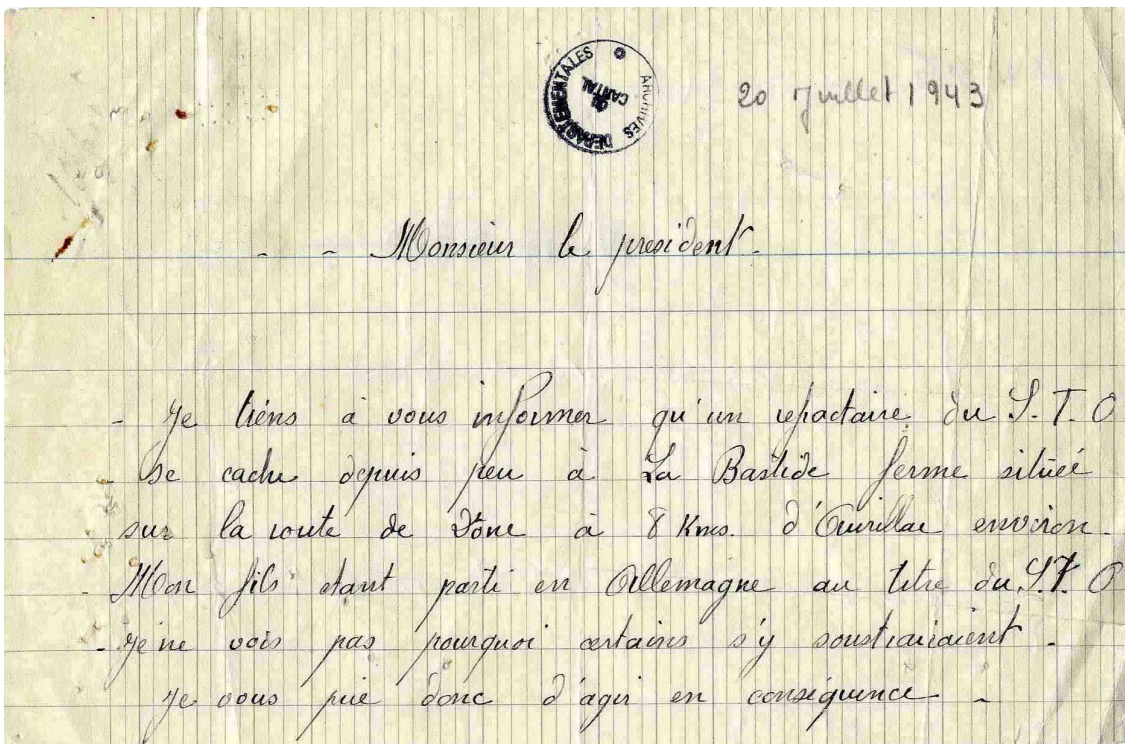 ARCHIVES DÉPARTEMENTALES
DU
CANTAL
20 Juillet 1943
- - Monsieur le president -
- Je tiens à vous informer qu'un refractaire du S.T.O
- se cache depuis peu à La Bastide ferme située
sur la route de à 8 Kms. d'Aurillac environ -
- Mon fils etant parti en Allemagne au titre du S.T.O
- Je ne vois pas pourquoi certains s'y soustrairaient -
Je vous prie donc d'agir en conséquence -